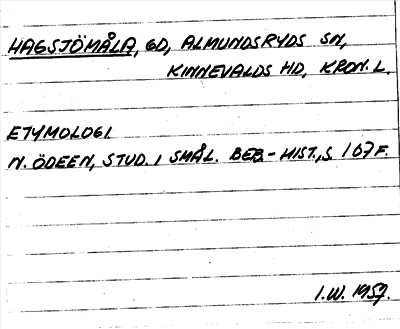 HAGSJÖMÅLA, GD, ALMUNDSRYDS SN,
KINNEVALDS HD, KRON. L.
ETYMOLOGI.
N. ÖDEEN, STUD. I SMÅL. BEB.-HIST., S. 107 F.
I.W. 1959.